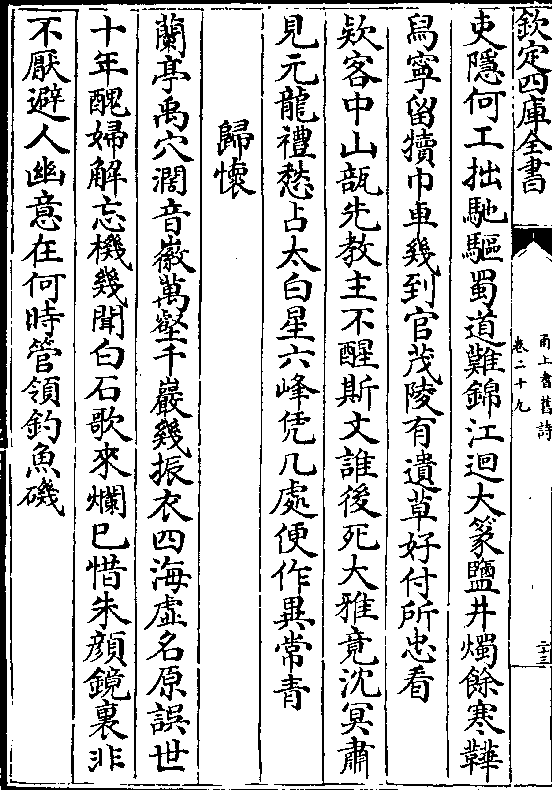 欽定四庫全書
甬上耆舊詩
卷二十九
二十三
吏隱何工拙馳驅蜀道難錦江迴大篆鹽井燭餘寒鞾
舄寧留犢巾車幾到官茂陵有遺草好付所忠看
欵客中山瓿先教主不醒斯文誰後死大雅竟沈冥肅
見元龍禮愁占太白星六峰凭几處便作異常青
歸懷
蘭亭禹穴濶音徽萬壑千巖幾振衣四海虛名原誤世
十年醜婦解忘機幾聞白石歌來爛已惜朱顔鏡裏非
不厭避人幽意在何時管領釣魚磯